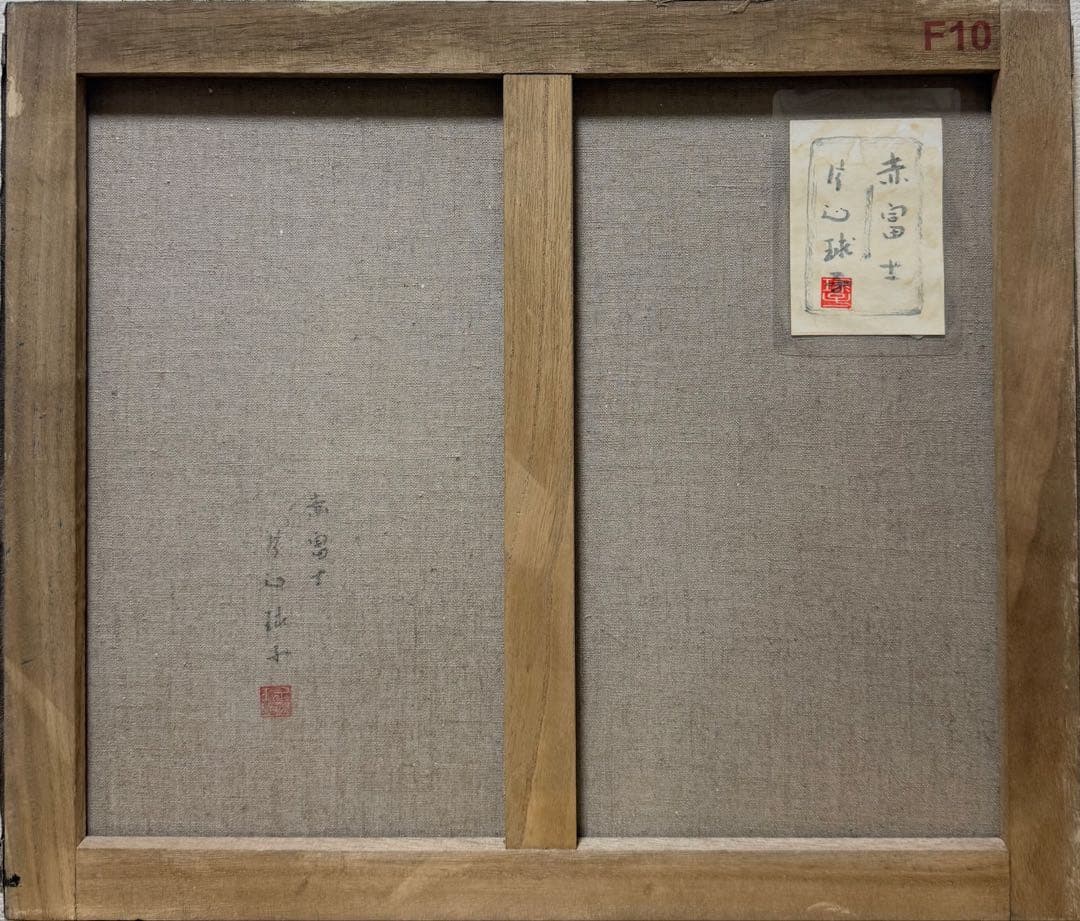 F10
赤富士
片岡球子
赤富士
片岡球子